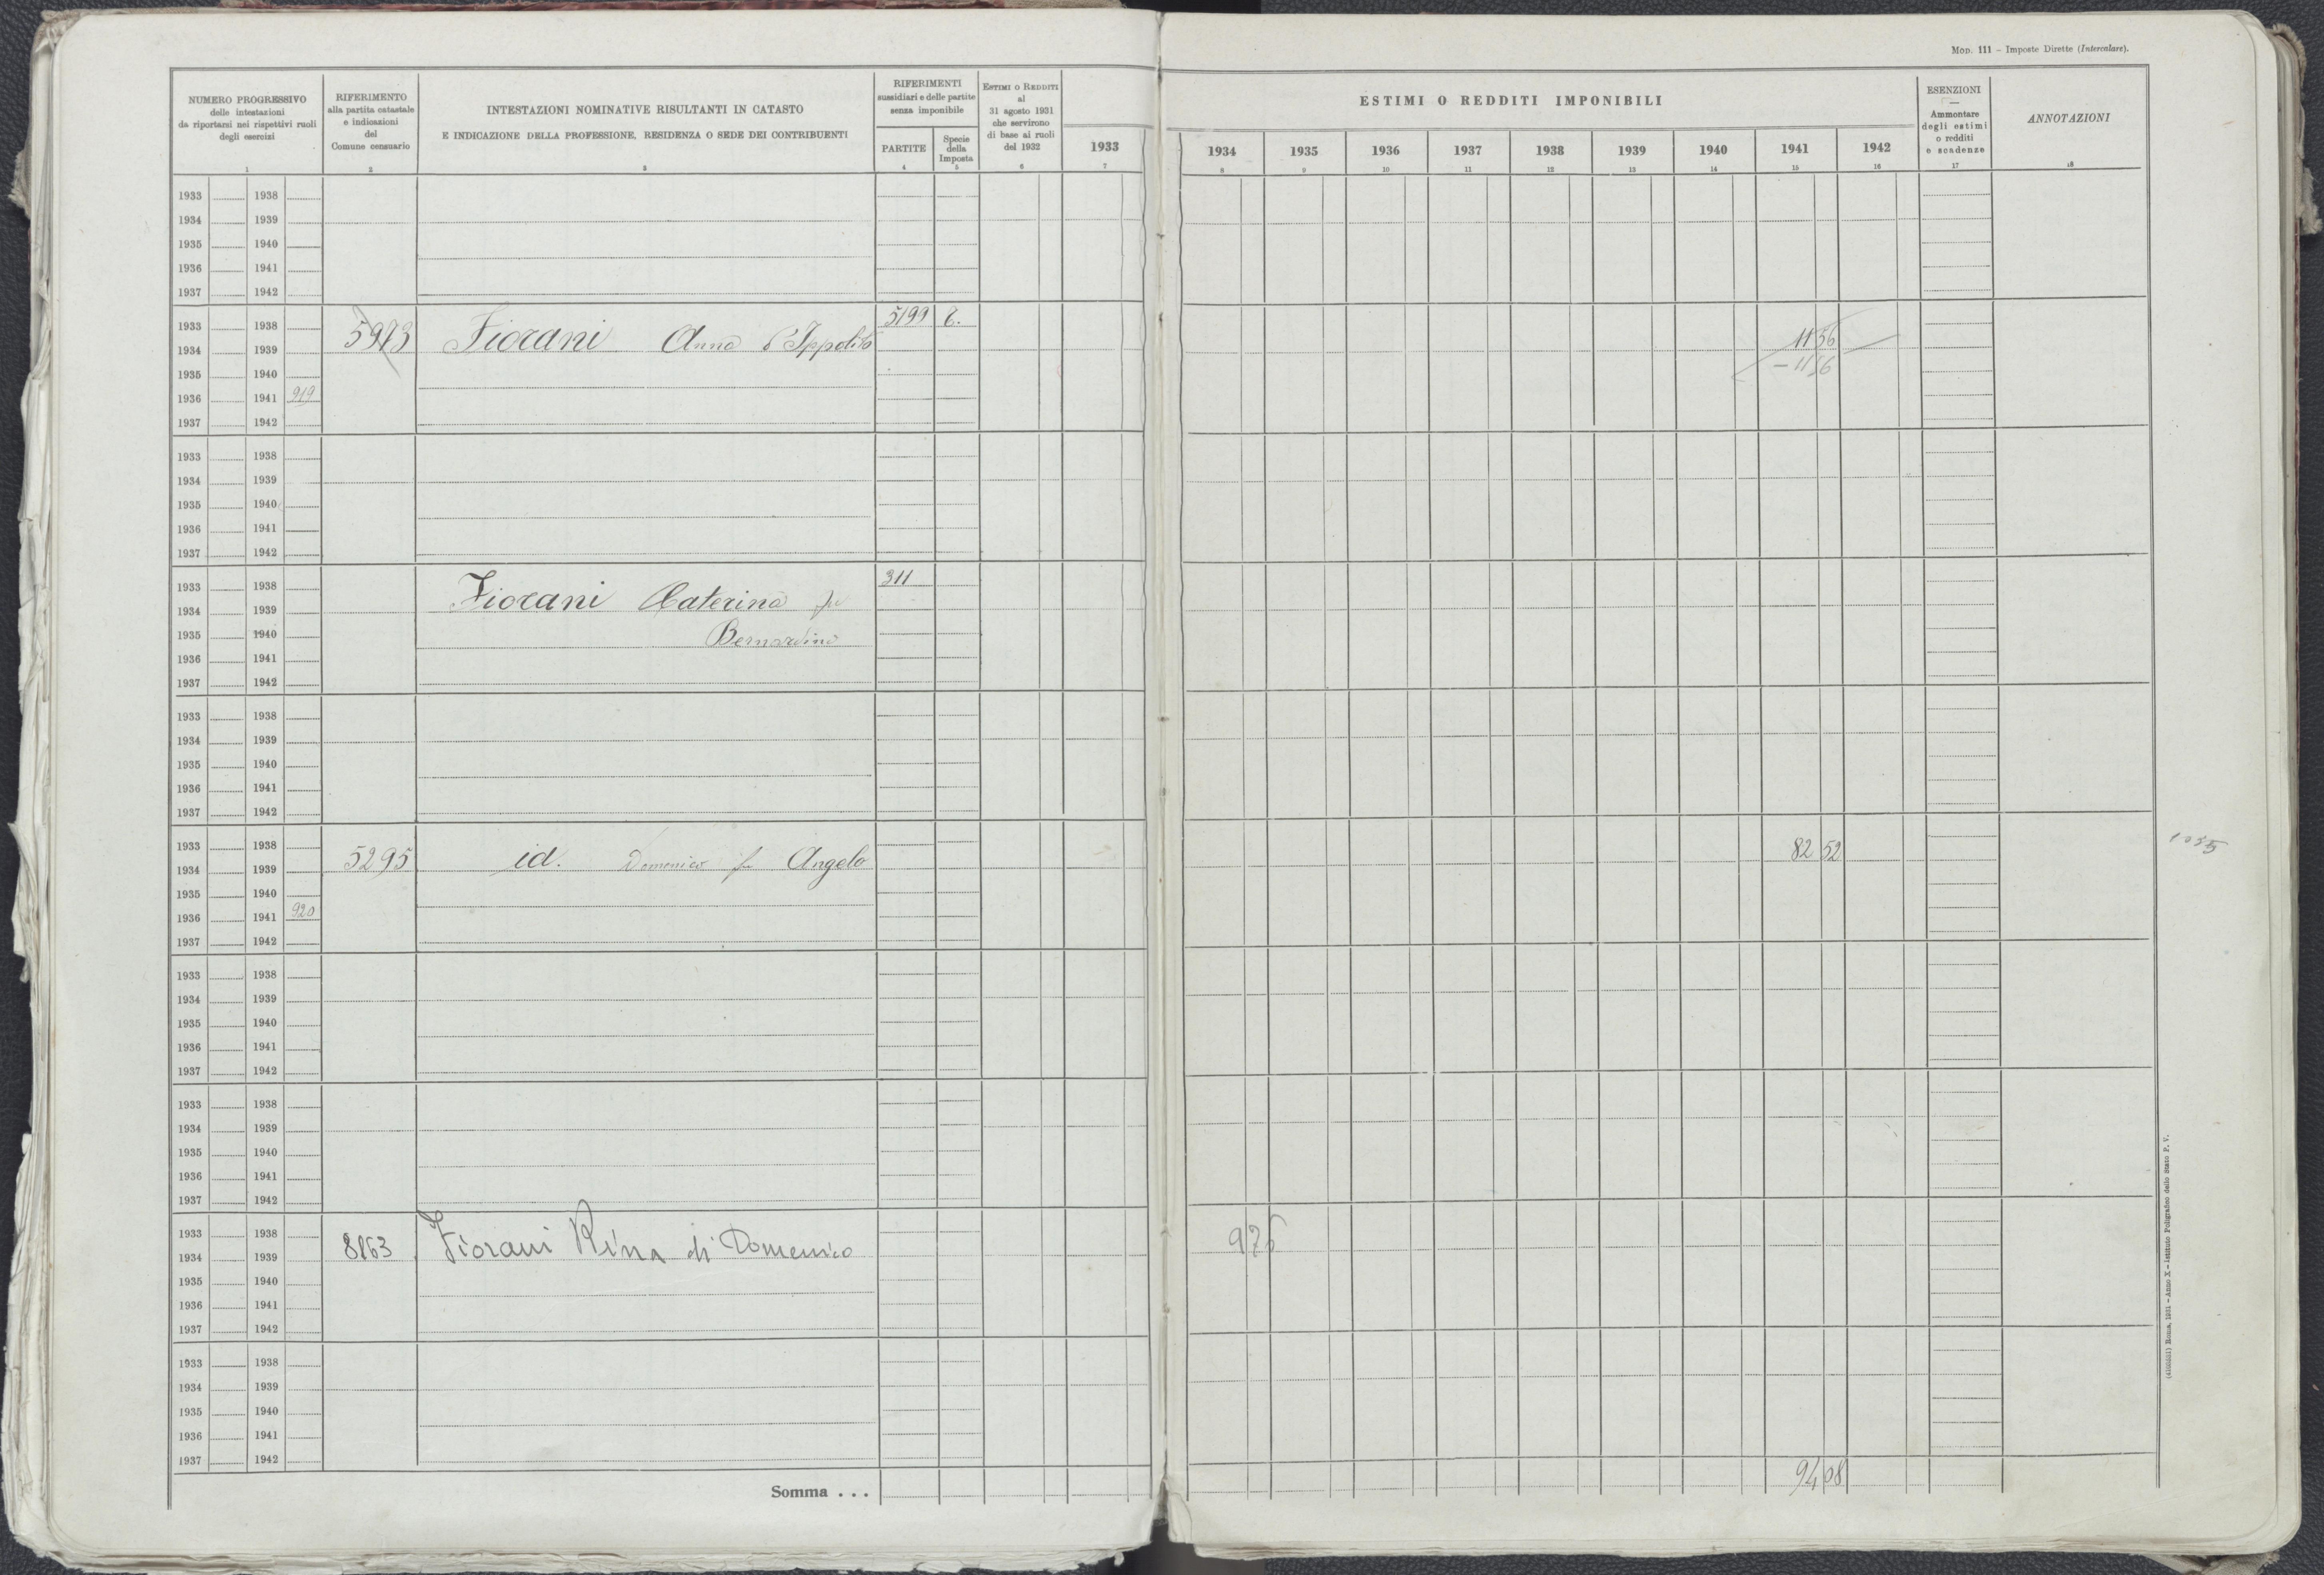 Mod. 111 – Imposte Dirette (Intercalare).
NUMERO PROGRESSIVO
delle intestazioni
da riportarsi nei rispettivi ruoli
degli esercizi
1
RIFERIMENTO
alla partita catastale
e indicazioni
del
Comune censuario
2
INTESTAZIONI NOMINATIVE RISULTANTI IN CATASTO
E INDICAZIONE DELLA PROFESSIONE, RESIDENZA O SEDE DEI CONTRIBUENTI
3
RIFERIMENTI
sussidiari e delle partite
senza imponibile
PARTITE
4
Specie
della
Imposta
5
ESTIMI O REDDITI
al
31 agosto 1931
che servirono
di base ai ruoli
del 1932
6
ESTIMI O REDDITI IMPONIBILI
1933 1934 1935 1936 1937 1938 1939 1940 1941 1942
7 8 9 10 11 12 13 14 15 16
ESENZIONI
—
Ammontare
degli estimi
o redditi
e scadenze
17
ANNOTAZIONI
18
1933 1938
1934 1939
1935 1940
1936 1941
1937 1942
1933 1938 5199
1934 1939 Fiorani Anna d'Ippolito 1156
1935 1940 – 1156
1936 1941 919
1937 1942
1933 1938
1934 1939
1935 1940
1936 1941
1937 1942
1933 1938 311
1934 1939 Fiorani Caterina fu
1935 1940 Bernardino
1936 1941
1937 1942
1933 1938
1934 1939
1935 1940
1936 1941
1937 1942
1933 1938
1934 1939 5295 id. Domenico fu Angelo 82 52
1935 1940
1936 1941 920
1937 1942
1933 1938
1934 1939
1935 1940
1936 1941
1937 1942
1933 1938
1934 1939
1935 1940
1936 1941
1937 1942
1933 1938
1934 1939 8163 Fiorani Rina di Domenico 976
1935 1940
1936 1941
1937 1942
1933 1938
1934 1939
1935 1940
1936 1941
1937 1942
Somma . . . 94 08
Roma, 1931 – Anno X – Istituto Poligrafico dello Stato P. V.